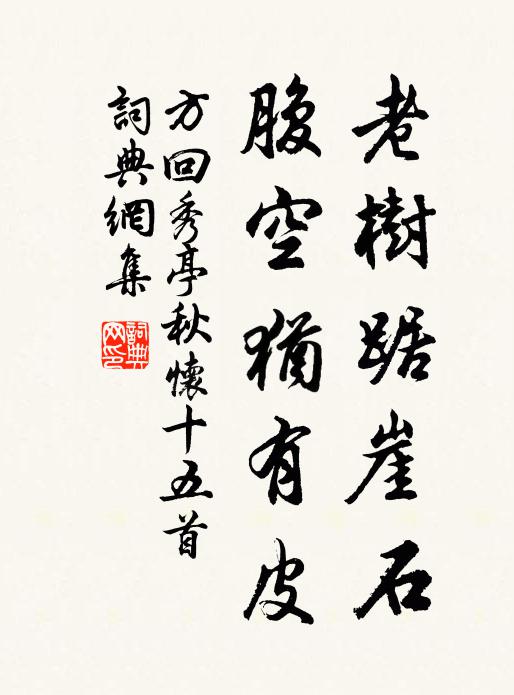 老樹踞崖石
腹空猶有皮
方回秀亭秋懷十五首
詞典網集
詞典網印